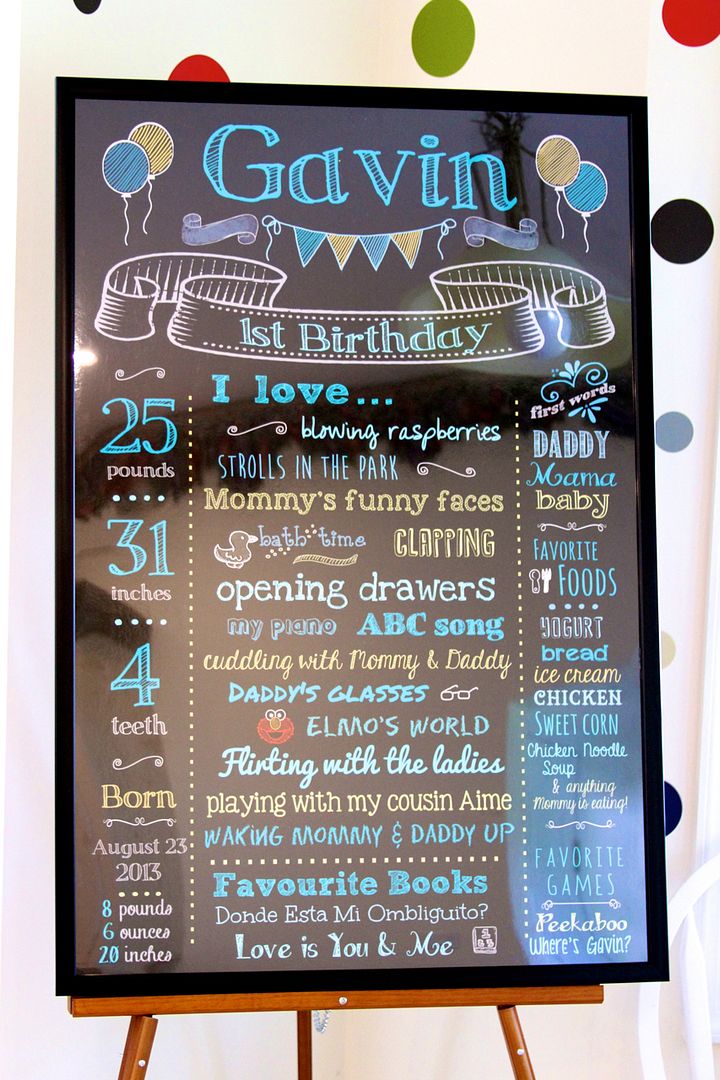 Gavin
1st Birthday
25
pounds
31
inches
4
teeth
Born
August 23
2013
8 pounds
6 ounces
20 inches
I love...
blowing raspberries
STROLLS IN THE PARK
Mommy's funny faces
bath time
CLAPPING
opening drawers
my piano ABC song
cuddling with Mommy & Daddy
DADDY'S GLASSES
ELMO'S WORLD
Flirting with the ladies
playing with my cousin Aime
WAKING MOMMY & DADDY UP
Favourite Books
Donde Esta Mi Ombliguito?
Love is You & Me
first words
DADDY
Mama
baby
FAVORITE
FOODS
YOGURT
bread
ice cream
CHICKEN
SWEET CORN
Chicken Noodle
Soup
& anything
Mommy is eating!
FAVORITE
GAMES
Peekaboo
Where's Gavin?